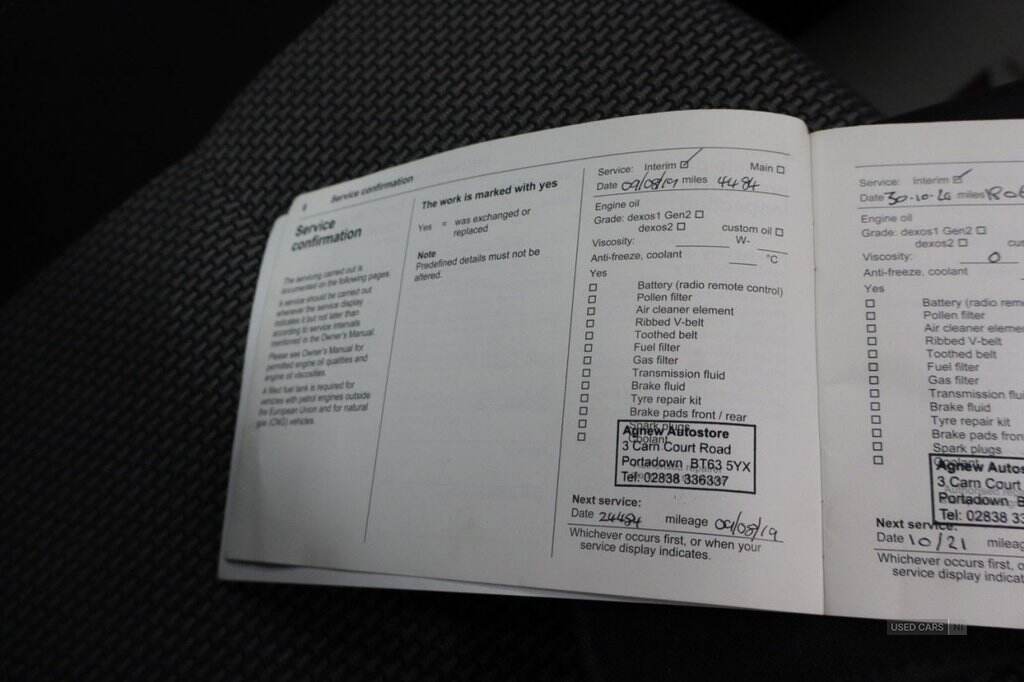 6 Service confirmation
Service
confirmation
The servicing carried out is
documented on the following pages.
A service should be carried out
whenever the service display
indicates it but not later than
according to service intervals
mentioned in the Owner's Manual.
Please see Owner's Manual for
permitted engine oil qualities and
engine oil viscosities.
A filled fuel tank is required for
vehicles with petrol engines outside
the European Union and for natural
gas (CNG) vehicles.
The work is marked with yes
Yes = was exchanged or
replaced
Note
Predefined details must not be
altered.
Service: Interim ☑ Main ☐
Date 09/08/19 miles 4484
Engine oil
Grade: dexos1 Gen2 ☐
dexos2 ☐ custom oil ☐
Viscosity: W-
Anti-freeze, coolant °C
Yes
☐ Battery (radio remote control)
☐ Pollen filter
☐ Air cleaner element
☐ Ribbed V-belt
☐ Toothed belt
☐ Fuel filter
☐ Gas filter
☐ Transmission fluid
☐ Brake fluid
☐ Tyre repair kit
☐ Brake pads front / rear
☐ Spark plugs
☐ Coolant
Agnew Autostore
3 Carn Court Road
Portadown BT63 5YX
Tel: 02838 336337
Next service:
Date 24484 mileage 09/08/19
Whichever occurs first, or when your
service display indicates.
Service: Interim ☑
Date 30-10-20 miles
Engine oil
Grade: dexos1 Gen2 ☐
dexos2 ☐ cus
Viscosity: 0
Anti-freeze, coolant
Yes
☐ Battery (radio rem
☐ Pollen filter
☐ Air cleaner eleme
☐ Ribbed V-belt
☐ Toothed belt
☐ Fuel filter
☐ Gas filter
☐ Transmission flu
☐ Brake fluid
☐ Tyre repair kit
☐ Brake pads fron
☐ Spark plugs
☐ Coolant
Agnew Autos
3 Carn Court
Portadown B
Tel: 02838 33
Next service:
Date 10/21 mileag
Whichever occurs first, o
service display indicat
USED CARS NI